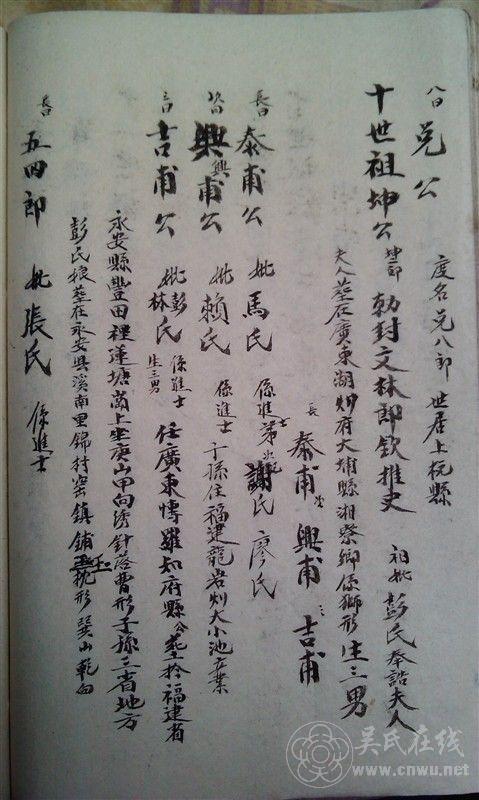 八曰 兑公 度名兑八郎 世居上杭縣
十世祖坤公 坤一郎 勅封文林郎欽推史 祖妣彭氏奉誥夫人
夫人墓在廣東湖州府大埔縣湘寮鄉係獅形 生三男
長泰甫 次興甫 三吉甫
長曰泰甫公 妣馬氏 係進士 第次 謝氏 廖氏
次曰興甫公 妣賴氏 係進士 子孫住福建龍岩州大小池立業
三曰吉甫公 妣彭林氏 係進士 生三男 任廣東博羅知府縣公墓於福建省
永安縣豐田裡蓮塘崗上坐庚山甲向綉針落曹形子孫三省地方
彭氏娘墓在永安县溪南里錦村窑鎮鋪玉枕形巽山乾向
長曰五四郎 妣張氏 係進士
吴氏在线
www.cnwu.net